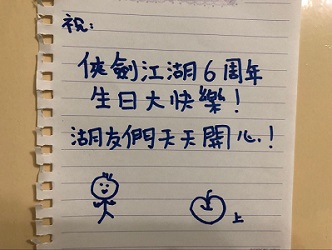 祝:
俠劍江湖6周年
生日大快樂!
湖友們天天開心!
上